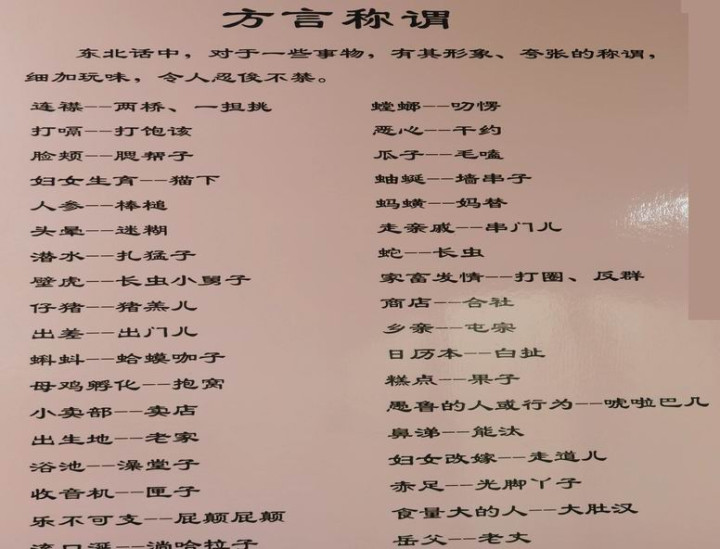 方言称谓
东北话中，对于一些事物，有其形象、夸张的称谓，
细加玩味，令人忍俊不禁。
连襟--两桥、一担挑
打嗝--打饱该
脸颊--腮帮子
妇女生育--猫下
人参--棒槌
头晕--迷糊
潜水--扎猛子
壁虎--长虫小舅子
仔猪--猪羔儿
出差--出门儿
蝌蚪--蛤蟆咖子
母鸡孵化--抱窝
小卖部--卖店
出生地--老家
浴池--澡堂子
收音机--匣子
乐不可支--屁颠屁颠
流口涎--淌哈拉子
螳螂--叨愣
恶心--干约
瓜子--毛嗑
蚰蜒--墙串子
蚂蟥--妈替
走亲戚--串门儿
蛇--长虫
家畜发情--打圈、反群
商店--合社
乡亲--屯亲
日历本--白扯
糕点--果子
愚鲁的人或行为--唬啦巴几
鼻涕--能汰
妇女改嫁--走道儿
赤足--光脚丫子
食量大的人--大肚汉
岳父--老丈